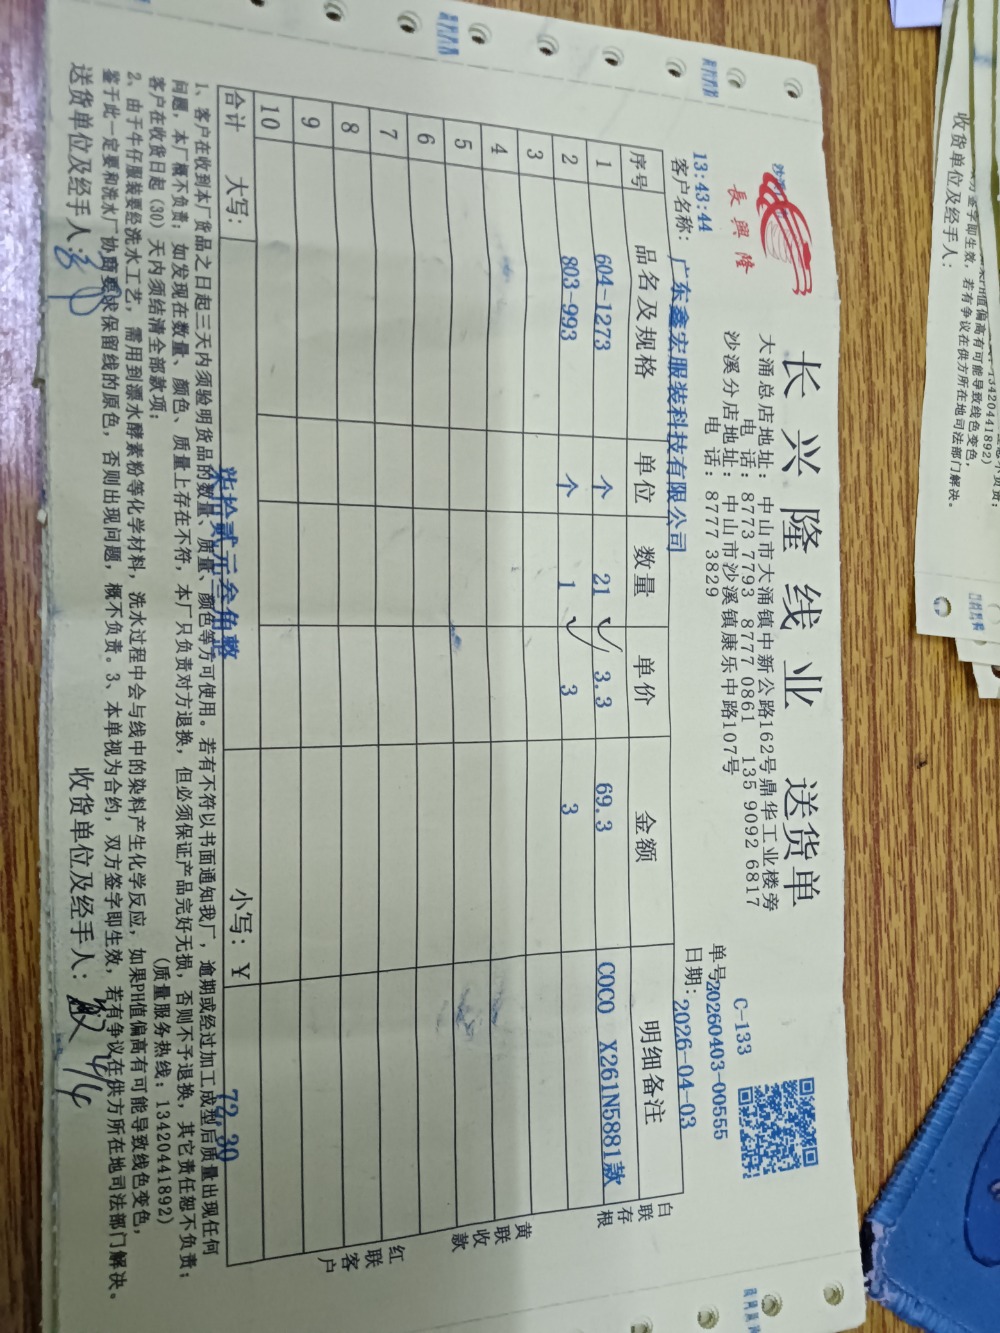 長興隆
长兴隆线业 送货单
大涌总店地址：中山市大涌镇中新公路162号鼎华工业楼旁
电 话：8773 7793 8777 0861 135 9092 6817
沙溪分店地址：中山市沙溪镇康乐中路107号
电 话：8777 3829
C-133
单号20260403-00555
日期：2026-04-03
13:43:44
客户名称：广东鑫宏服装科技有限公司
序号 品名及规格 单位 数量 单价 金额 明细备注
1 604-1273 个 21 3.3 69.3 COCO X261N5881款
2 803-993 个 1 3 3
3
4
5
6
7
8
9
10
合计 大写： 柒拾贰元叁角整 小写：￥ 72.30
白联存根
黄联收款
红联客户
1、客户在收到本厂货品之日起三天内须验明货品的数量、质量、颜色等方可使用。若有不符以书面通知我厂，逾期或经过加工成型后质量出现任何
问题，本厂概不负责；如发现在数量、颜色、质量上存在不符，本厂只负责对方退换，但必须保证产品完好无损，否则不予退换，其它责任恕不负责；
客户在收货日起（30）天内须结清全部款项； （质量服务热线：13420441892）
2、由于牛仔服装要经洗水工艺，需用到漂水酵素粉等化学材料，洗水过程中会与线中的染料产生化学反应，如果PH值偏高有可能导致线色变色，
鉴于此一定要和洗水厂协商要求保留线的原色，否则出现问题，概不负责。3、本单视为合约，双方签字即生效，若有争议在供方所在地司法部门解决。
送货单位及经手人：
收货单位及经手人： 4/4
13420441892)
值偏高有可能导致线色变色，
方签字即生效，若有争议在供方所在地司法部门解决。
收货单位及经手人：